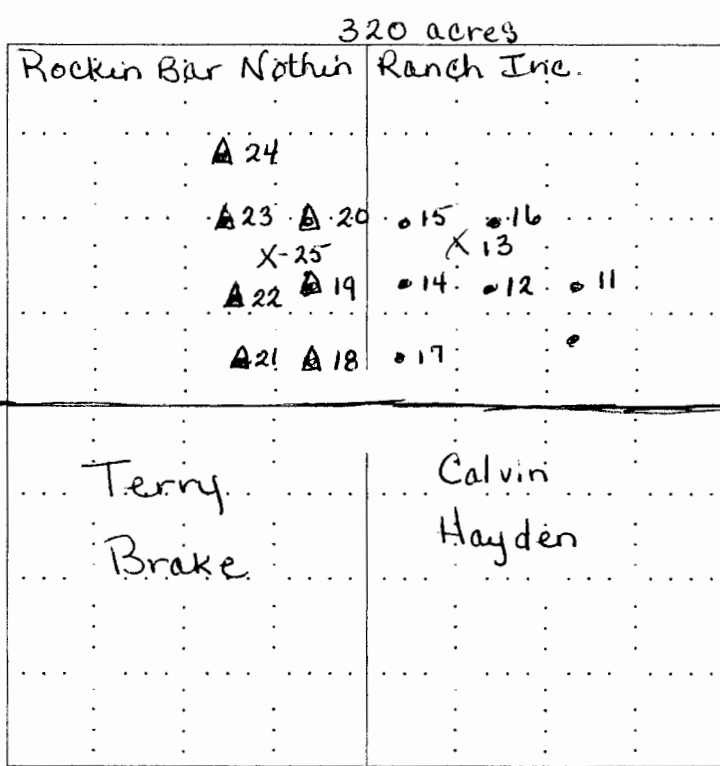 320 acres
Rockin Bar Nothin Ranch Inc.
24
23 20 15 16
X-25 X 13
22 19 14 12 11
21 18 17
Terry Calvin
Brake Hayden